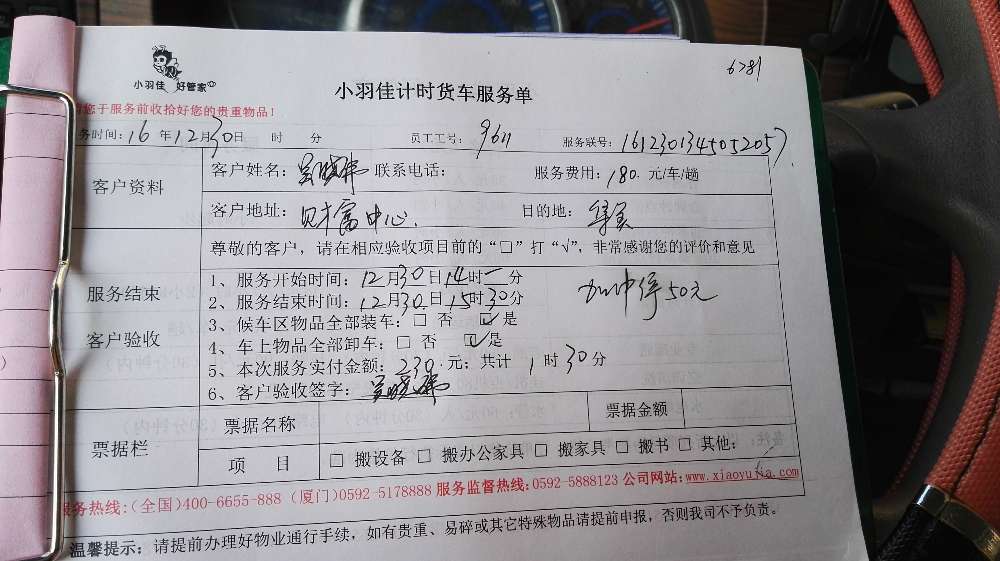 6781
小羽佳 好管家
小羽佳计时货车服务单
您于服务前收拾好您的贵重物品!
务时间: 16 年 12 月 30 日 时 分 员工工号: 9611 服务联号: 1612301345052057
客户资料
客户姓名: 联系电话: 服务费用: 180. 元/车/趟
客户地址: 财富中心. 目的地:
服务结束
客户验收
尊敬的客户,请在相应验收项目前的“□”打“√”,非常感谢您的评价和意见
1、服务开始时间: 12 月 30 日 14 时 一 分
2、服务结束时间: 12 月 30 日 15 时 30 分
加中停50元
3、候车区物品全部装车: □ 否 ☑ 是
4、车上物品全部卸车: □ 否 ☑ 是
5、本次服务实付金额: 230. 元; 共计 1 时 30 分
6、客户验收签字:
票据栏
票据名称 票据金额
项 目 □ 搬设备 □ 搬办公家具 □ 搬家具 □ 搬书 □ 其他:
服务热线:(全国)400-6655-888 (厦门)0592-5178888 服务监督热线:0592-5888123 公司网站:www.xiaoyujia.com
温馨提示: 请提前办理好物业通行手续,如有贵重、易碎或其它特殊物品请提前申报,否则我司不予负责。